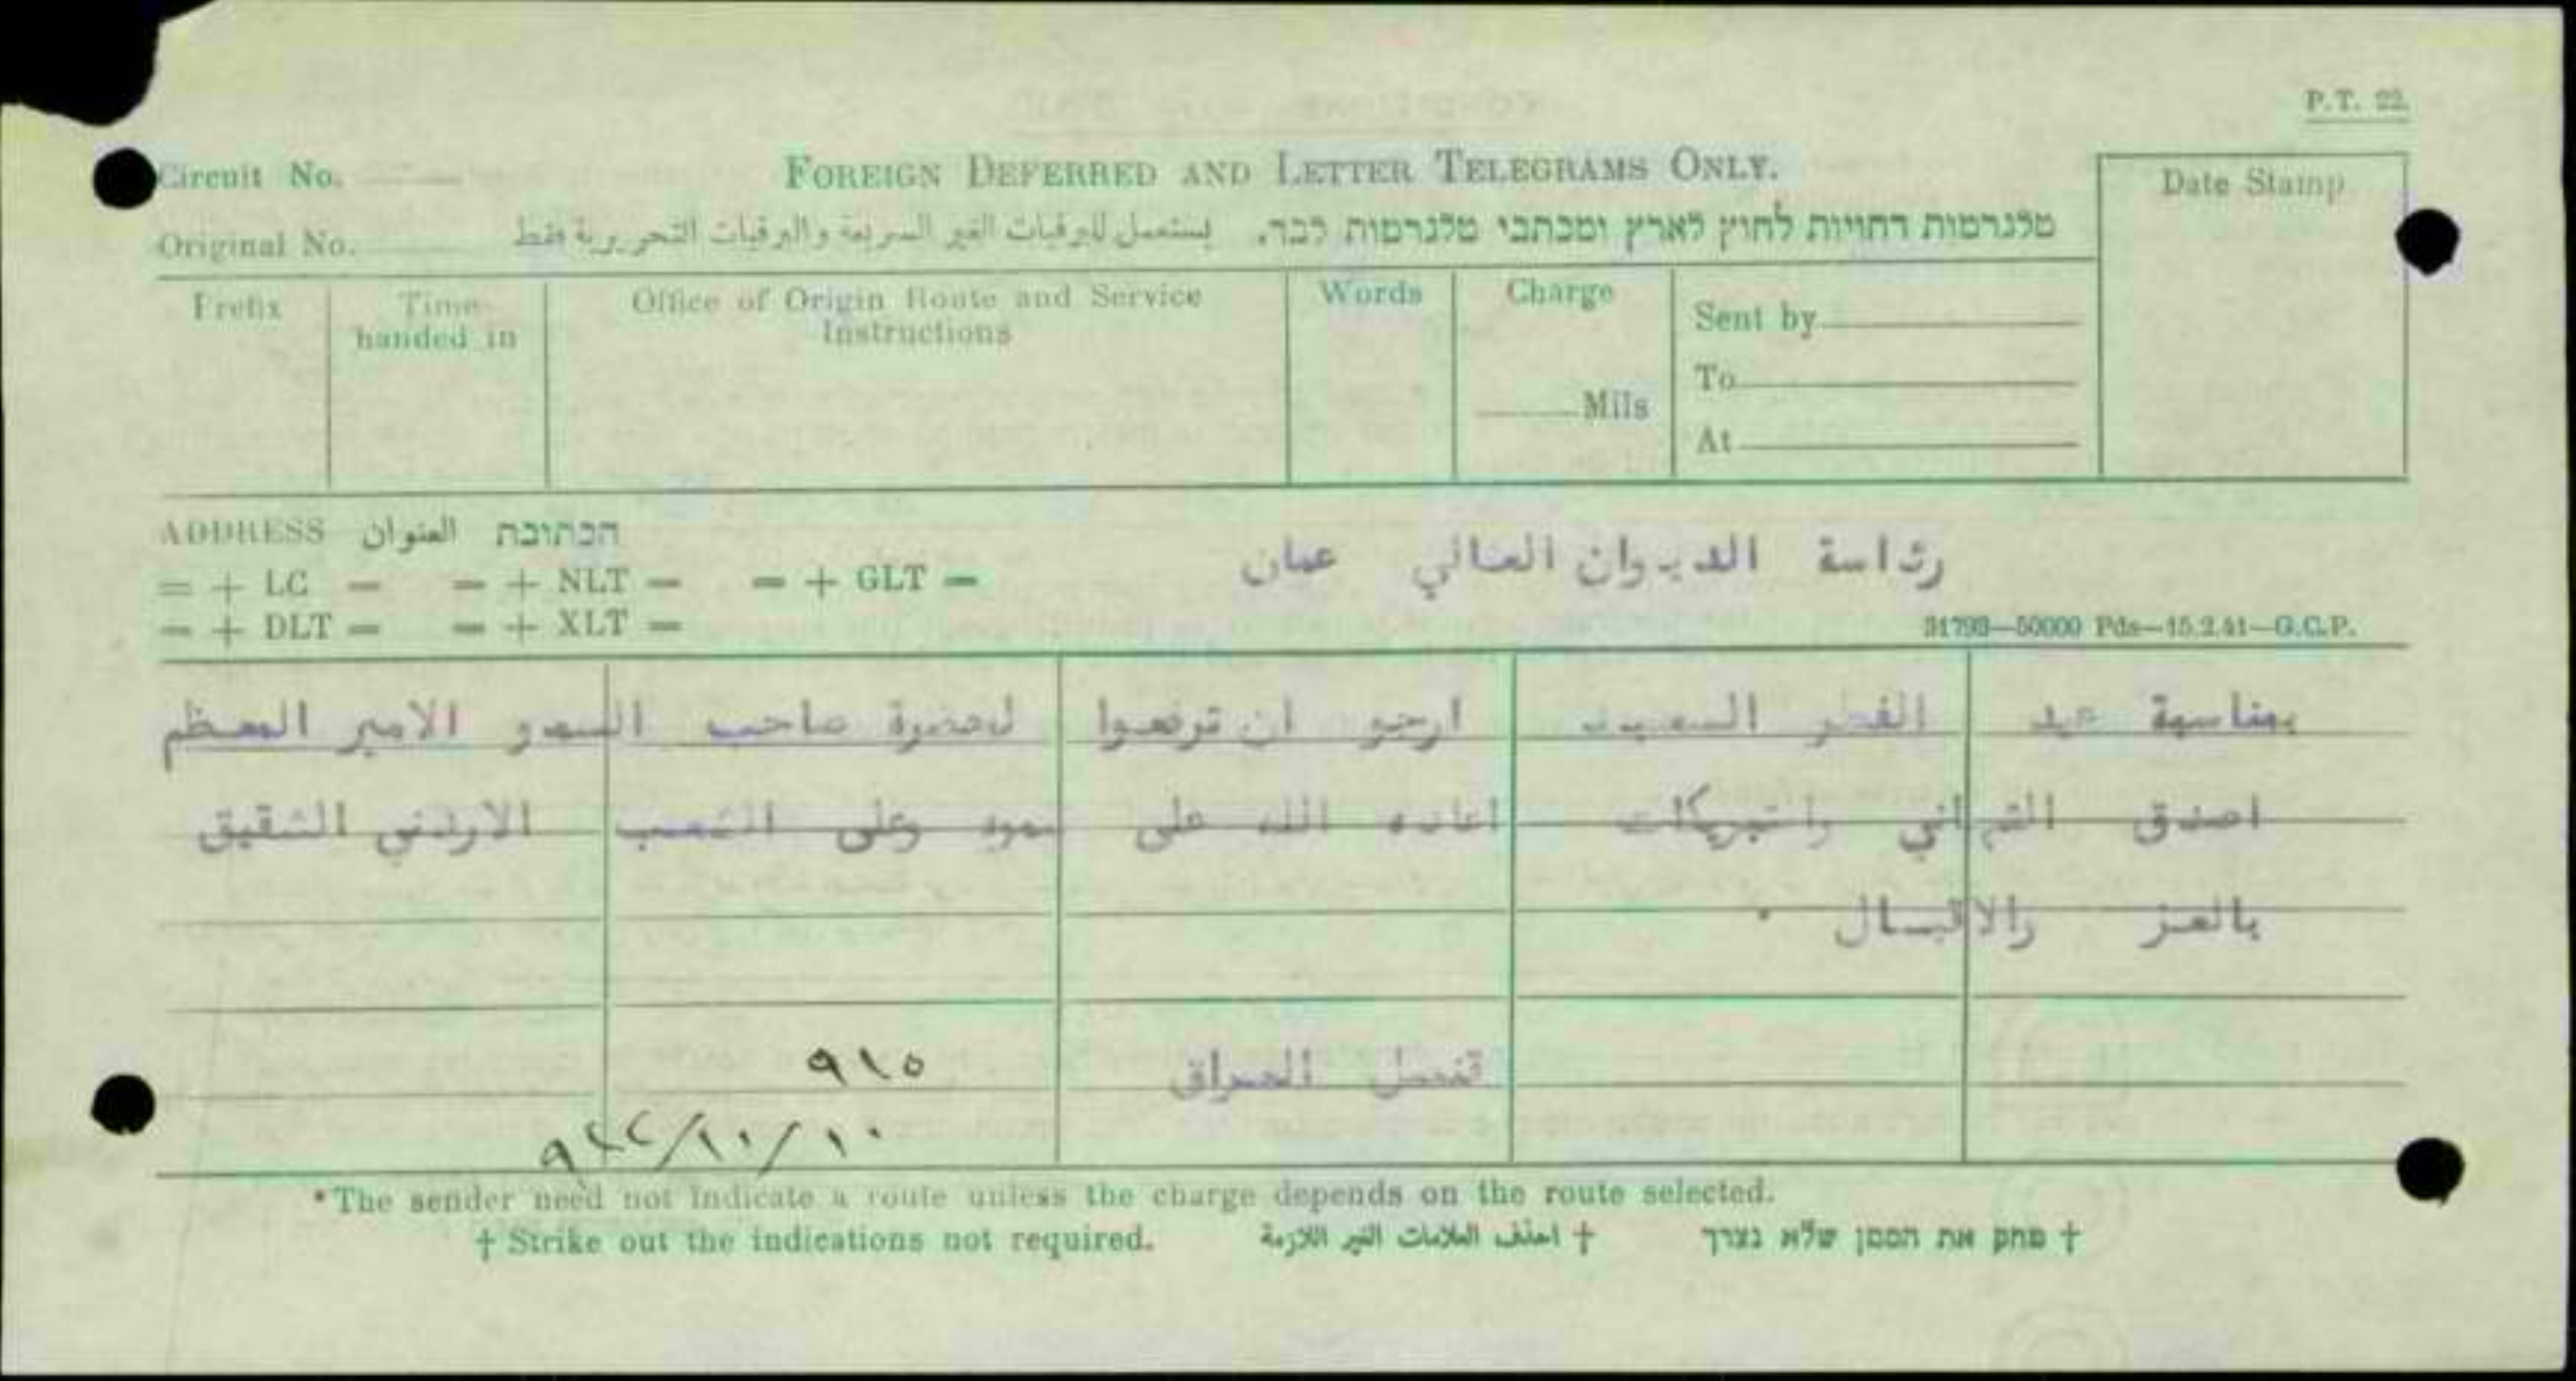 P.T. 22.
Circuit No.
FOREIGN DEFERRED AND LETTER TELEGRAMS ONLY.
Date Stamp
Original No.
טלגרמות דחויות לחוץ לארץ ומכתבי טלגרמות לבד. يستعمل للبرقيات الغير السريعة والبرقيات التحريرية فقط
Prefix
Time handed in
Office of Origin Route and Service Instructions
Words
Charge
Mils
Sent by
To
At
ADDRESS العنوان הכתובת
= + LC — — + NLT — — + GLT —
— + DLT — — + XLT —
رئاسة الديوان العالي عمان
31793—50000 Pds—15.2.41—G.C.P.
بمناسبة عيد الفطر السعيد ارجو ان ترفعوا لحضرة صاحب السمو الامير المعظم
اصدق التهاني والتبريكات اعاده الله على سموه وعلى الشعب الاردني الشقيق
بالعز والاقبال .
قنصل العراق
٩١٥
١٠/١٠/٩٤٢
*The sender need not indicate a route unless the charge depends on the route selected.
† Strike out the indications not required. † احذف العلامات الغير اللازمة † מחק את הסמן שלא נצרך